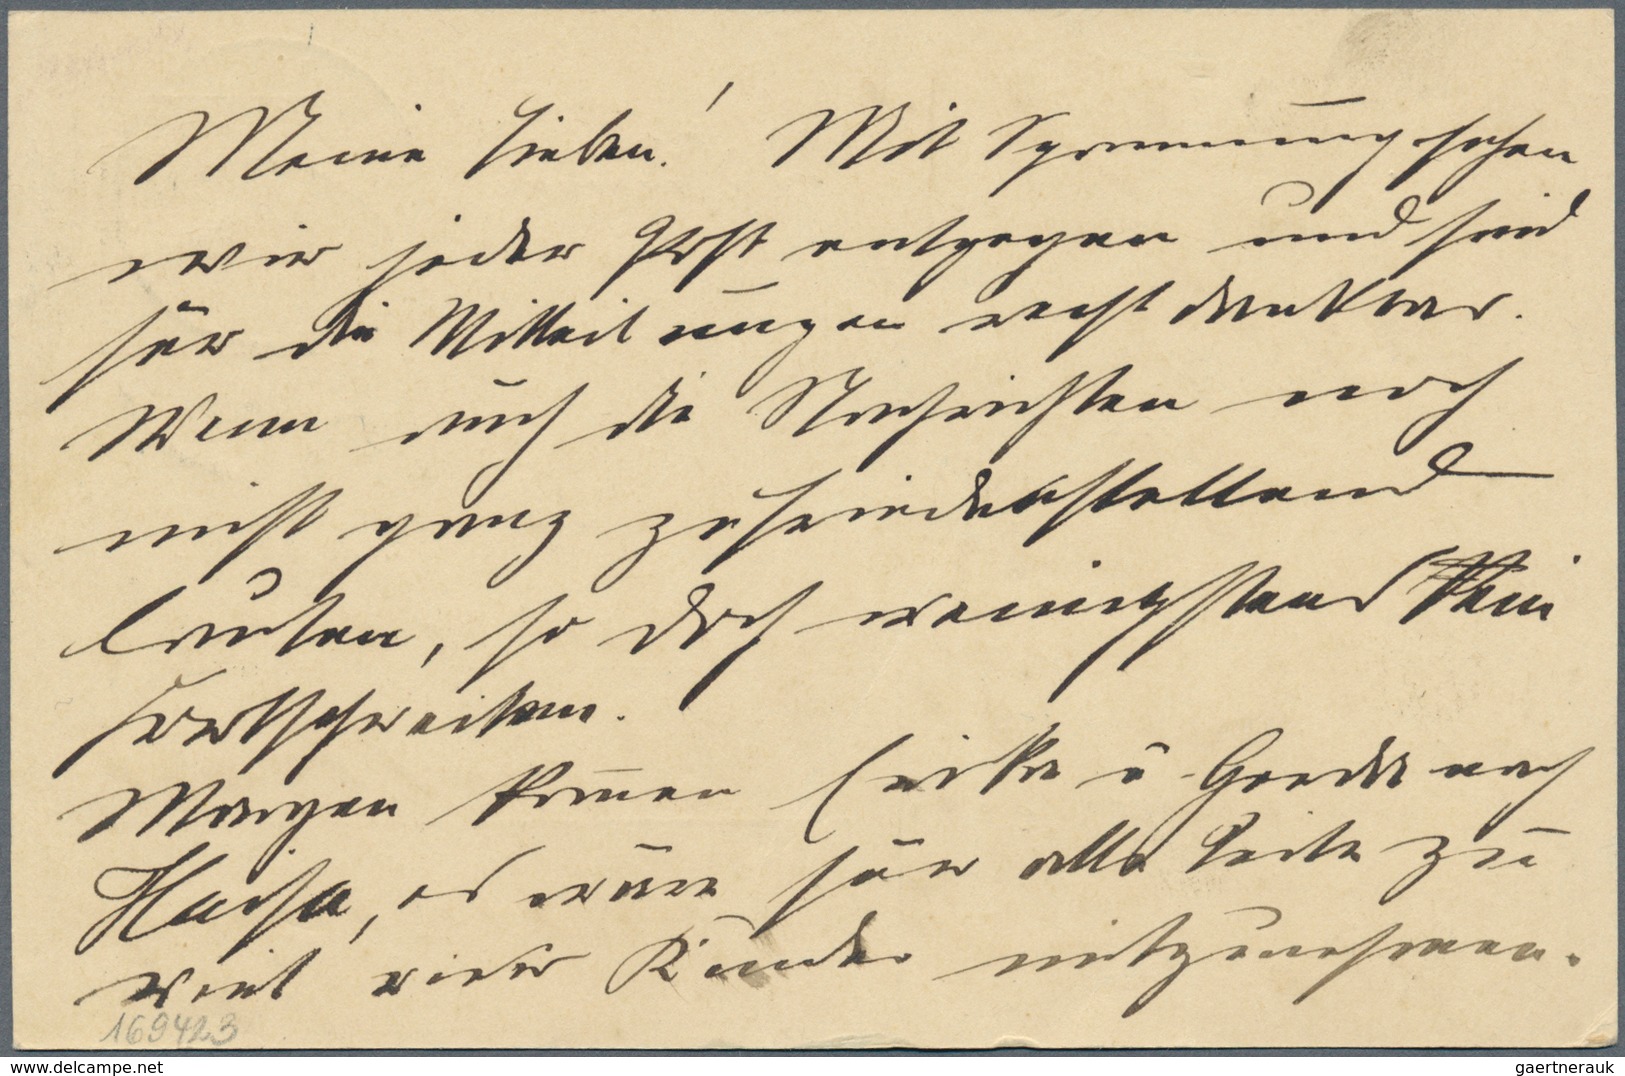 Meine Lieben! Mit Spannung sehen
wir jeder Post entgegen und sind
für die Mitteilungen recht dankbar.
Wenn auch die Nachrichten noch
nicht ganz zufriedenstellend
lauten, so doch wenigstens kein
Fortschreiten.
Morgen kommen u. Gerda nach
Haifa, es wäre für alle Teile zu
viel vier Kinder mitzunehmen.
169423
gaertnerauk